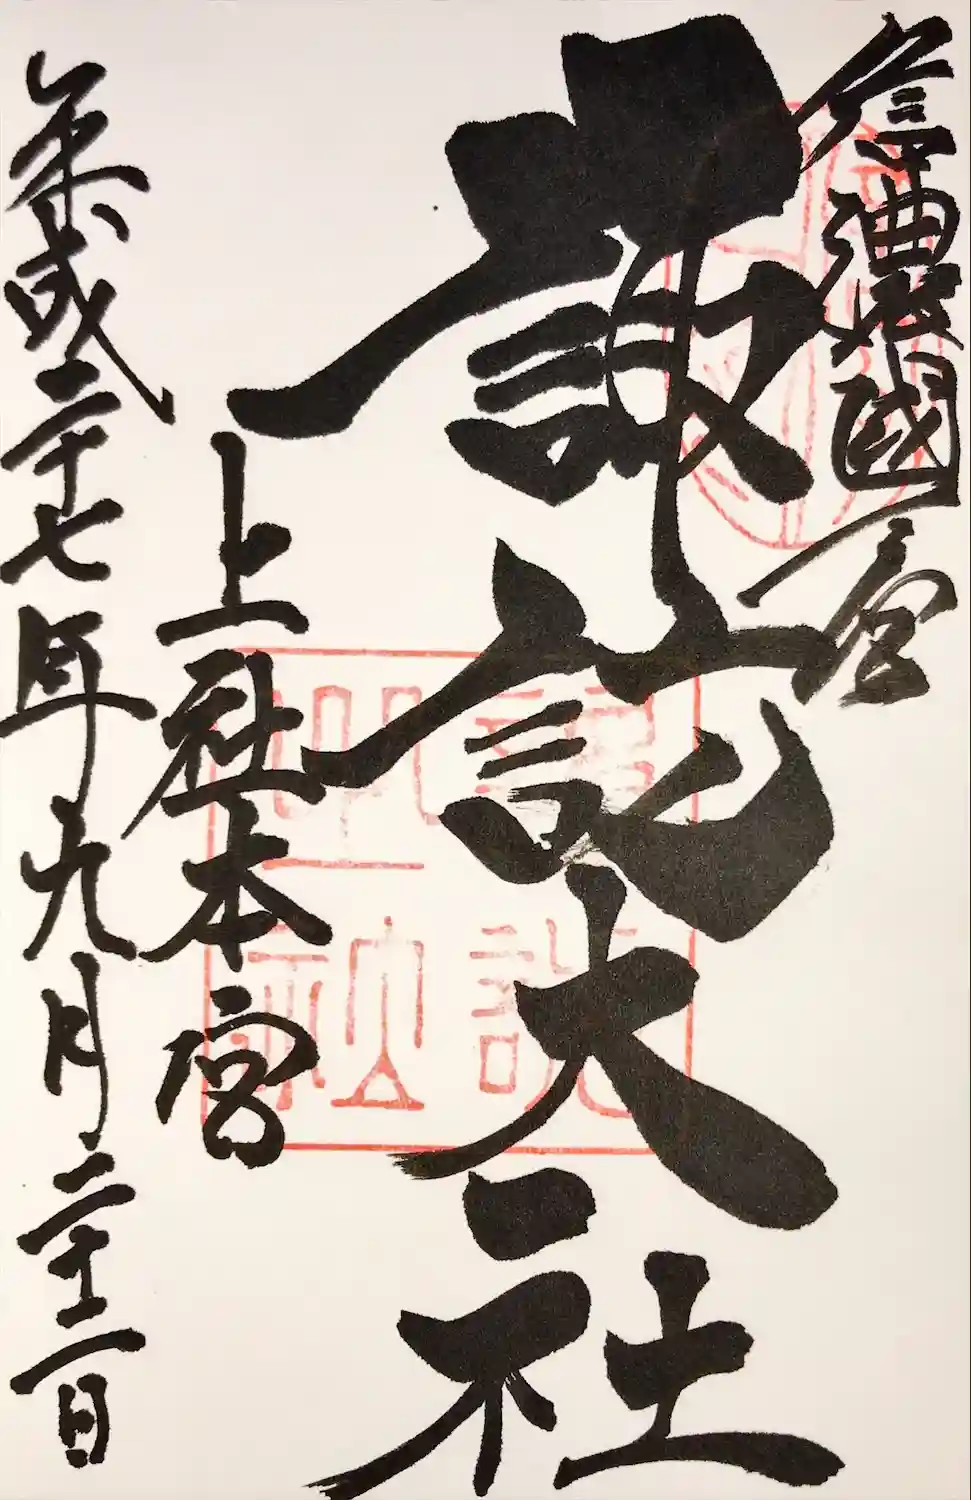 信濃國一宮
諏訪大社
上社本宮
平成二十七年九月二十一日